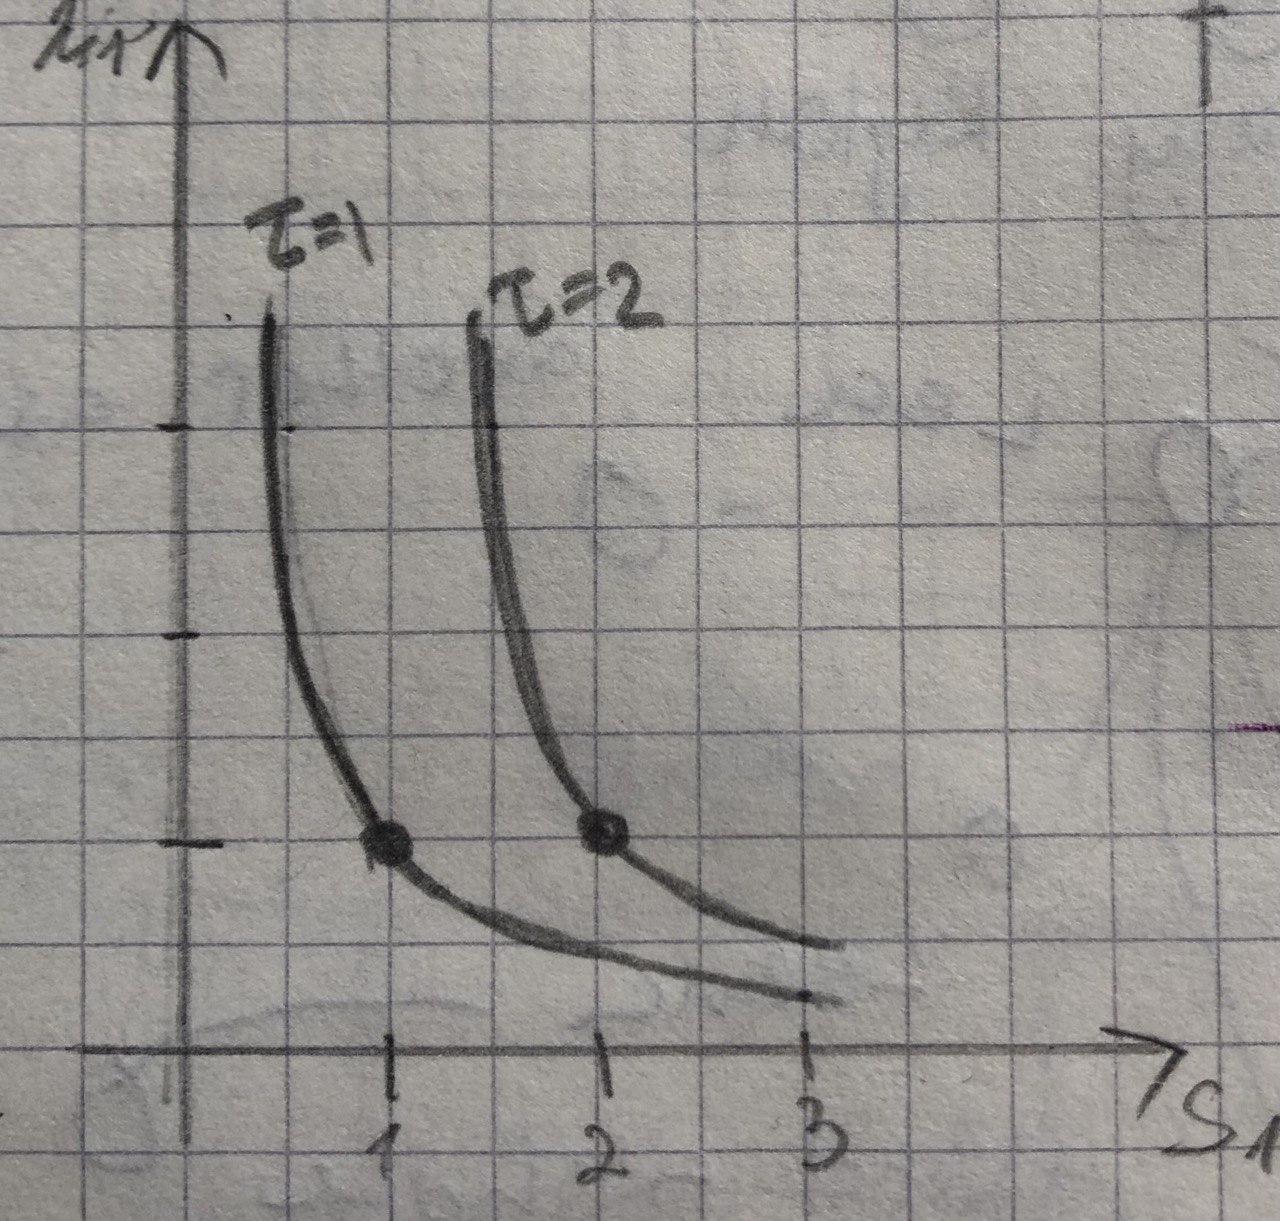 τ=1
τ=2
1 2 3
S₁